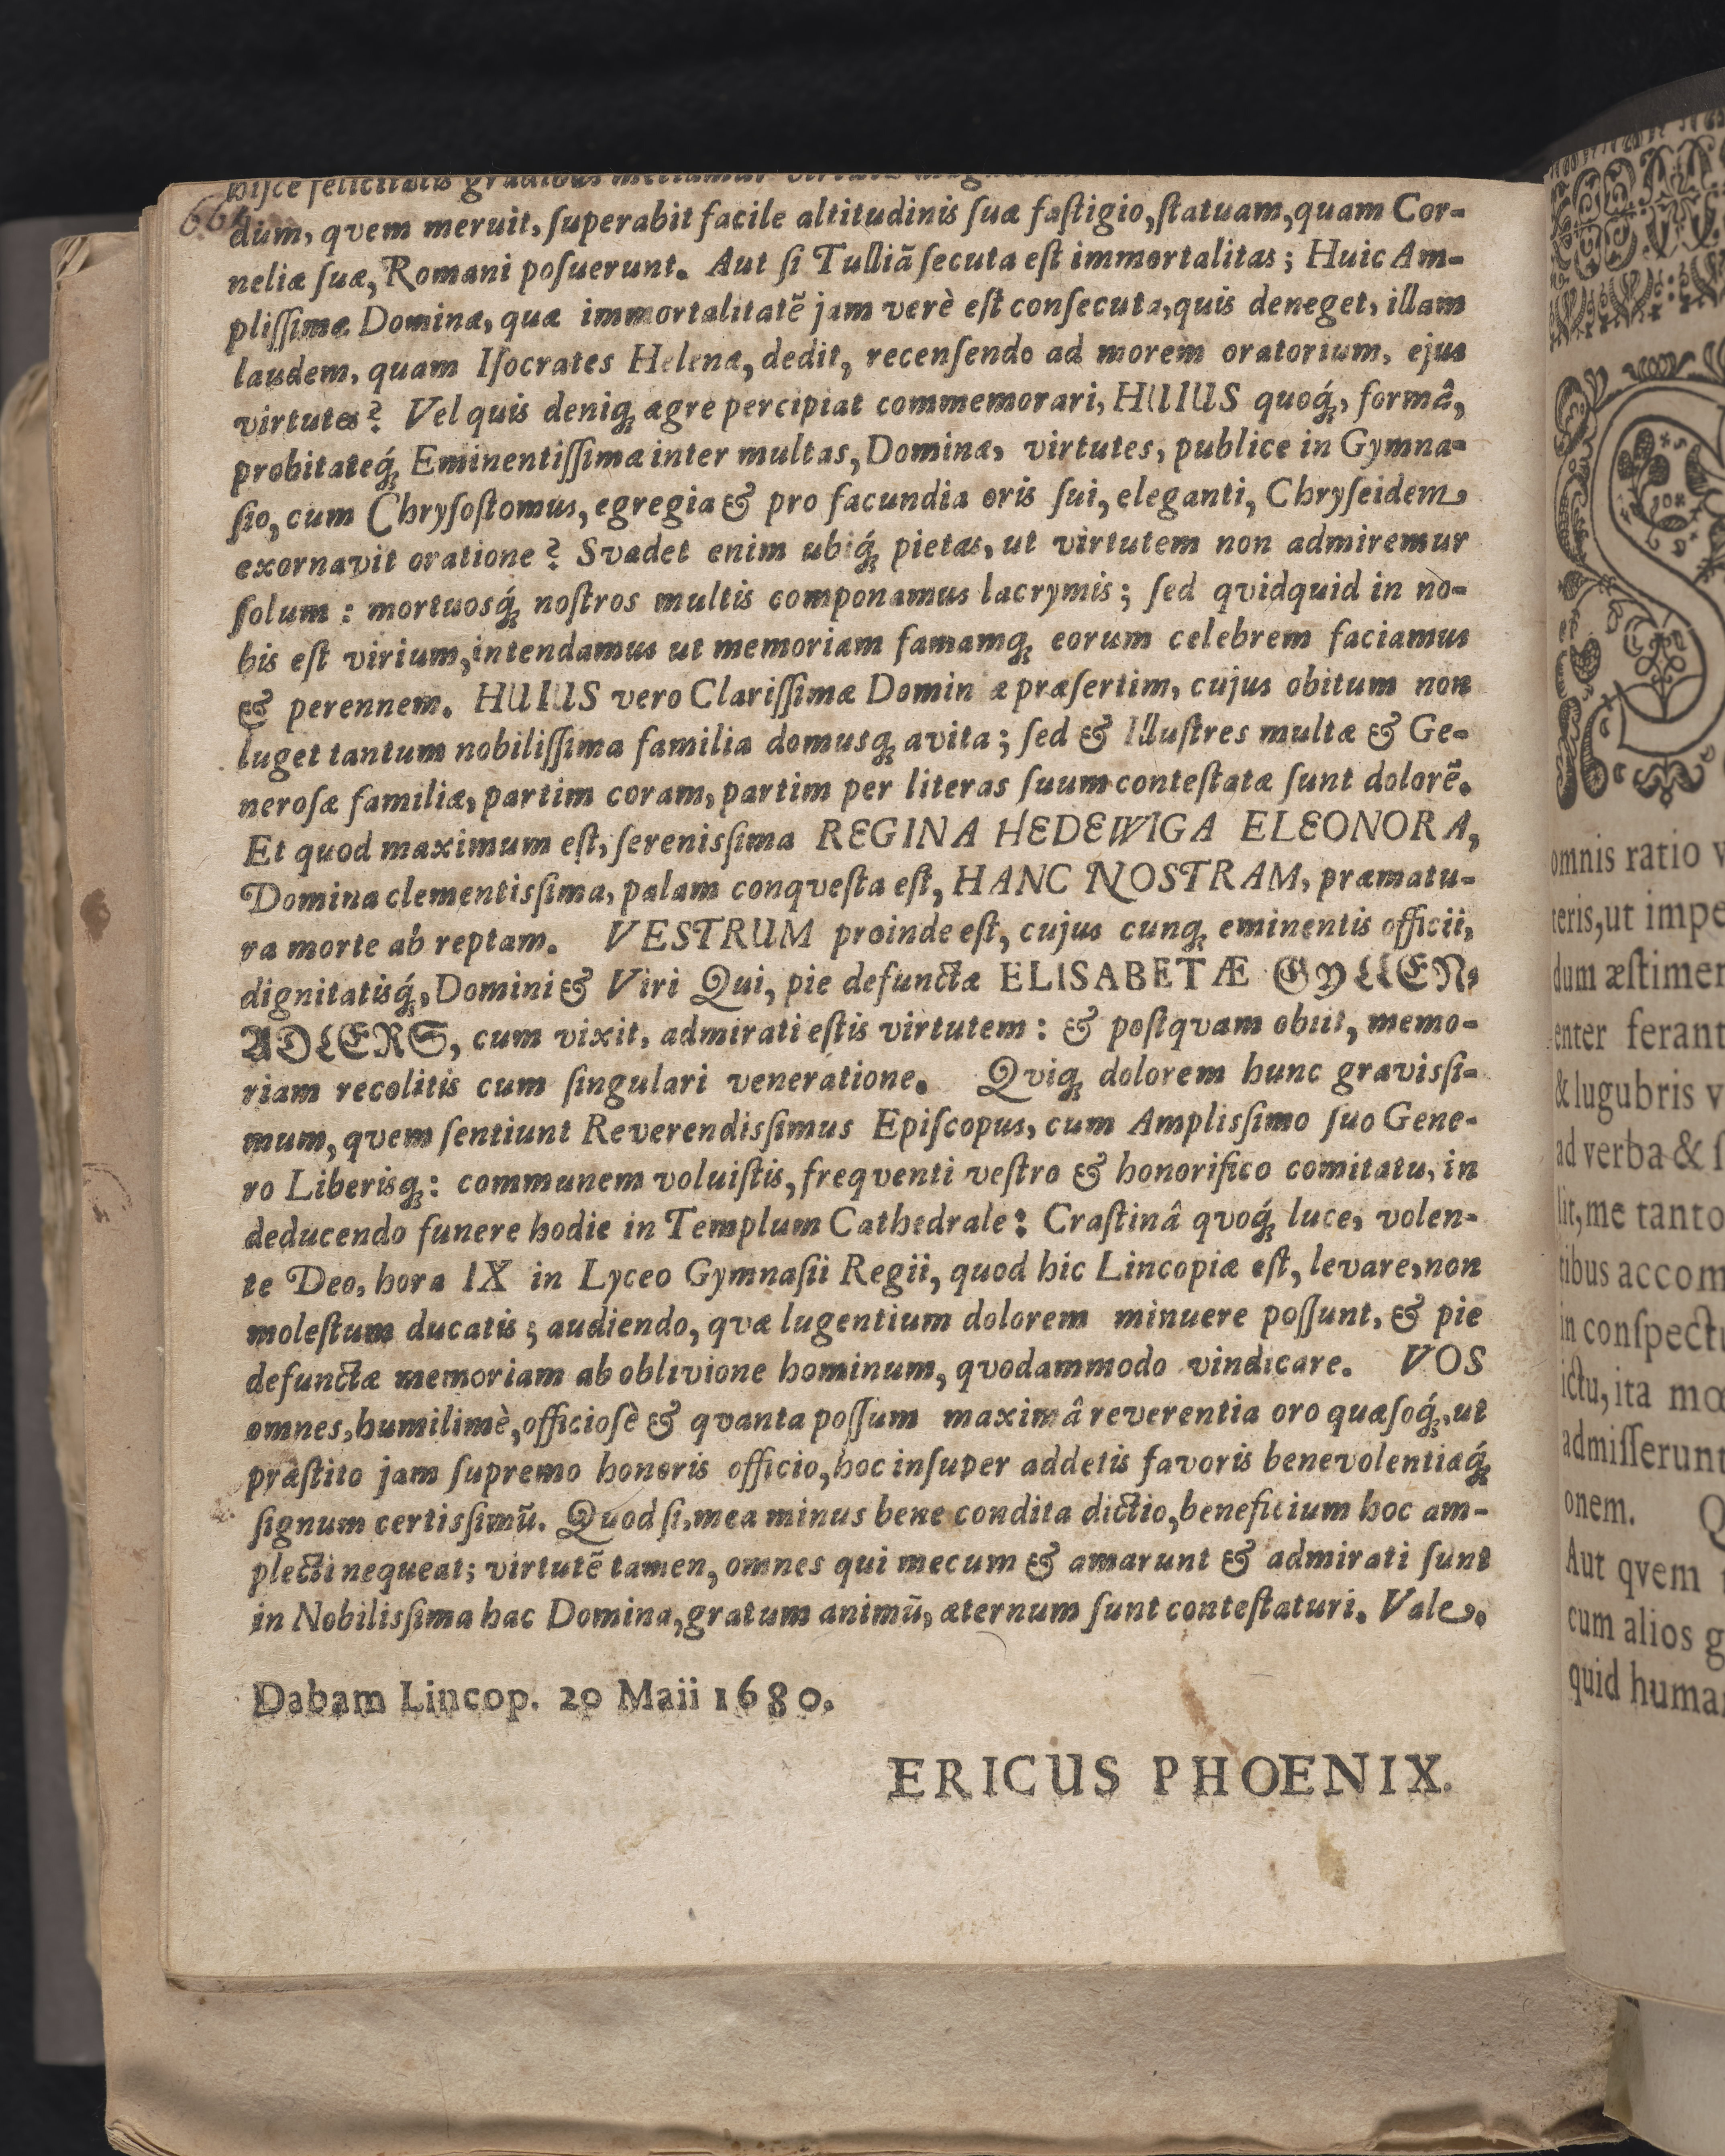 664
hiſce felicitatis gradibus
dum, qvem meruit, ſuperabit facile altitudinis ſuæ faſtigio, ſtatuam, quam Cor-
neliæ ſuæ, Romani poſuerunt. Aut ſi Tulliã ſecuta eſt immortalitas; Huic Am-
pliſſimæ Dominæ, quæ immortalitatẽ jam verè eſt conſecuta, quis deneget, illam
laudem, quam Iſocrates Helenæ, dedit, recenſendo ad morem oratorium, ejus
virtutes? Vel quis deniq; ægre percipiat commemorari, HUIUS quoq́;, formâ,
probitateq́; Eminentiſſimæ inter multas, Dominæ, virtutes, publice in Gymna-
ſio, cum Chryſoſtomus, egregia & pro facundia oris ſui, eleganti, Chryſeidem
exornavit oratione? Svadet enim ubiq́; pietas, ut virtutem non admiremur
ſolum: mortuosq́; noſtros multis componamus lacrymis; ſed qvidquid in no-
bis eſt virium, intendamus ut memoriam famamq; eorum celebrem faciamus
& perennem. HUIUS vero Clariſſimæ Domin æ præſertim, cujus obitum non
luget tantum nobiliſſima familia domusq; avita; ſed & Illuſtres multæ & Ge-
neroſæ familiæ, partim coram, partim per literas ſuum conteſtatæ ſunt dolorẽ.
Et quod maximum eſt, ſerenisſima REGINA HEDEWIGA ELEONORA,
Domina clementisſima, palam conqveſta eſt, HANC NOSTRAM, præmatu-
ra morte ab reptam. VESTRUM proinde eſt, cujus cunq; eminentis officii,
dignitatisq́;, Domini & Viri Qui, pie defunctæ ELISABETÆ GYLLEN-
ADLERS, cum vixit, admirati eſtis virtutem: & poſtqvam obiit, memo-
riam recolitis cum ſingulari veneratione. Qviq; dolorem hunc gravisſi-
mum, qvem ſentiunt Reverendisſimus Epiſcopus, cum Amplisſimo ſuo Gene-
ro Liberisq;: communem voluiſtis, freqventi veſtro & honorifico comitatu, in
deducendo funere hodie in Templum Cathedrale: Craſtinâ qvoq́; luce, volen-
te Deo, hora IX in Lyceo Gymnaſii Regii, quod hic Lincopiæ eſt, levare, non
moleſtum ducatis; audiendo, qvæ lugentium dolorem minuere poſſunt, & pie
defunctæ memoriam ab oblivione hominum, qvodammodo vindicare. VOS
omnes, humilimè, officioſè & qvanta poſſum maximâ reverentia oro quæſoq́;, ut
præſtito jam ſupremo honoris officio, hoc inſuper addetis favoris benevolentiæq́;
ſignum certisſimũ. Quod ſi, mea minus bene condita dictio, beneficium hoc am-
plecti nequeat; virtutẽ tamen, omnes qui mecum & amarunt & admirati ſunt
in Nobilisſima hac Domina, gratum animũ, æternum ſunt conteſtaturi. Vale.
Dabam Lincop. 20 Maii 1680.
ERICUS PHOENIX.
omnis ratio
teris, ut impe
dum æſtimen
enter ferant
& lugubris v
ad verba & ſ
lit, me tanto
tibus accom
in conſpectu
ictu, ita mœ
admiſſerunt
onem. Q
Aut qvem
cum alios g
quid human